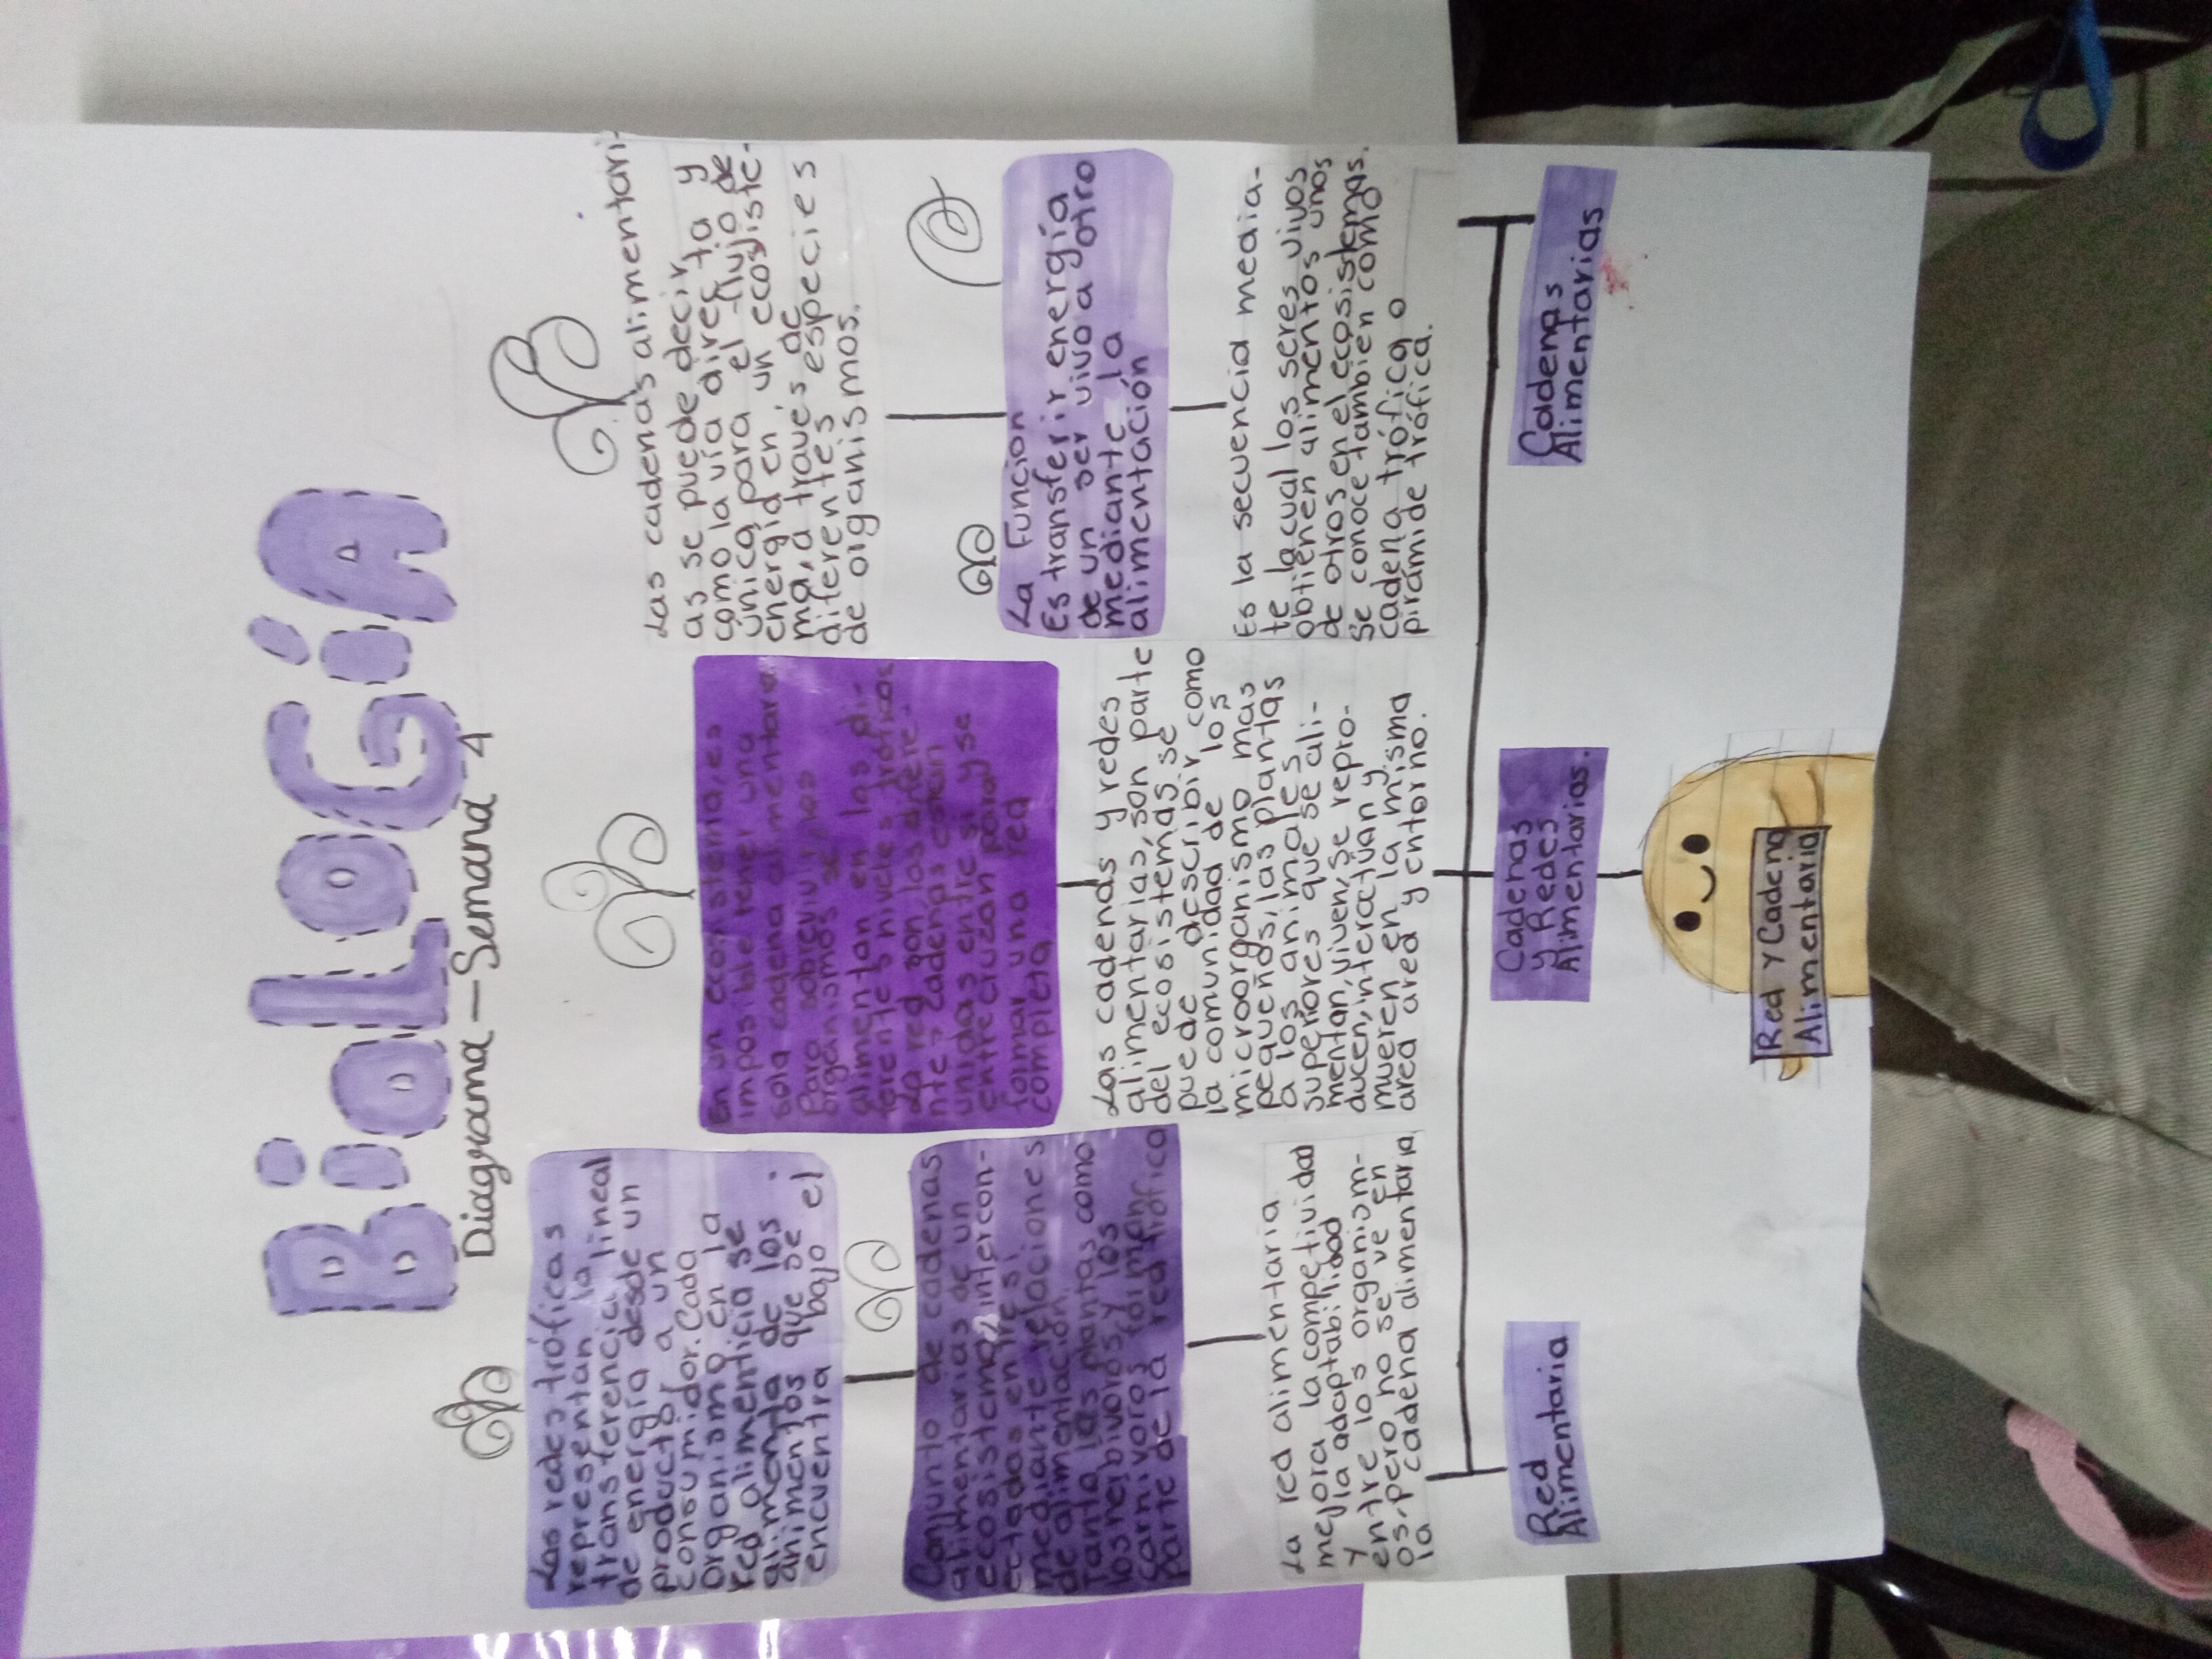 BioLoGíA
Diagrama - Semana 4
Las redes tróficas
representan la
transferencia lineal
de energía desde un
productor a un
consumidor. Cada
organismo en la
red alimenticia se
alimenta de los
alimentos que se
encuentra bajo el
Conjunto de cadenas
alimentarias de un
ecosistema, intercon-
ectadas entre si
mediante relaciones
de alimentación.
Tanto las plantas como
los herbivoros y los
carnivoros forman
parte de la red trófica
La red alimentaria
mejora la competividad
y la adaptabilidad
entre los organism-
os, pero no se ve en
la cadena alimentaria
Red
Alimentaria
En un ecosistema, es
imposible tener una
sola cadena alimentaria
Para sobrevivir, los
organismos se
alimentan en las di-
ferentes niveles tróficos
La red son, los difere-
ntes cadenas están
unidas entre si y se
entrecruzan para
formar una red
completa
Las cadenas y redes
alimentarias, son parte
del ecosistemas, se
puede describir como
la comunidad de los
microorganismo mas
pequeños, las plantas
a los animales
superiores que se ali-
mentan, viven, se repro-
ducen, interactuan y
mueren en la misma
area area y entorno.
Cadenas
y Redes
Alimentarias.
Las cadenas alimentari-
as se puede decir
como la vía directa y
única para el flujo de
energía en un ecosiste-
ma, a través de
diferentes especies
de organismos.
La Funcion
Es transferir energía
de un ser vivo a otro
mediante la
alimentación
Es la secuencia media-
te la cual los seres vivos
obtienen alimentos unos
de otros en el ecosistemas.
Se conoce tambien como
cadena trófica o
pirámide trófica.
Cadenas
Alimentarias
Red y Cadena
Alimentaria